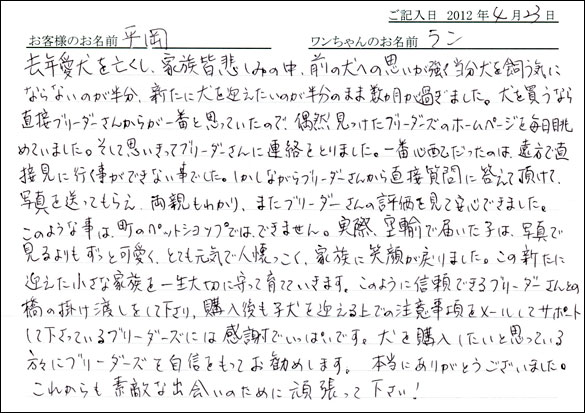 ご記入日 2012年4月23日
お客様のお名前 平岡 ワンちゃんのお名前 ラン
去年愛犬を亡くし、家族皆悲しみの中、前の犬への思いが強く当分犬を飼う気に
ならないのが半分、新たに犬を迎えたいのが半分のまま数ヶ月が過ぎました。犬を買うなら
直接ブリーダーさんからが一番と思っていたので、偶然見つけたブリーダーズのホームページを毎日眺
めていました。そして思いきってブリーダーさんに連絡をとりました。一番心配だったのは、遠方で直
接見に行く事ができない事でした。しかしながらブリーダーさんから直接質問に答えて頂けて、
写真を送ってもらえ、両親もわかり、またブリーダーさんの評価を見て安心できました。
このような事は、町のペットショップでは、できません。実際、空輸で届いた子は、写真で
見るよりもずっと可愛く、とても元気で人懐っこく、家族に笑顔が戻りました。この新たに
迎えた小さな家族を一生大切に守って育てていきます。このように信頼できるブリーダーさんとの
橋の掛け渡しをして下さり、購入後も子犬を迎える上での注意事項をメールしてサポート
して下さっているブリーダーズには感謝でいっぱいです。犬を購入したいと思っている
方々にブリーダーズを自信をもってお勧めします。本当にありがとうございました。
これからも素敵な出会いのために頑張って下さい!